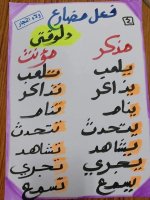 فعل مضارع
دلوقتي
مذكر مؤنث
يلعب تلعب
يذاكر تذاكر
ينام تنام
يتحدث تتحدث
يشاهد تشاهد
يجري تجري
يسمع تسمع